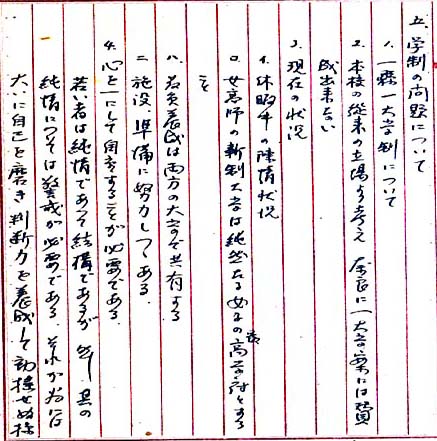 五、学制の問題について
1. 一県一大学制について
2. 本校の従来の立場より考え 奈良に一大学案には賛
成出来ない
3. 現在の状況
イ. 休暇中の陳情状況
ロ. 女高師の新制大学は純然たる女子の最高学府とする
こと
ハ. 教員養成は両方の大学で共有する
ニ. 施設、準備に努力しつゝある.
4. 心を一にして自重することが必要である.
若い者は純情であって結構であるが 然し其の
純情については警戒が必要である. それが為には
大いに自己を磨き判断力を養成して動揺せぬ様